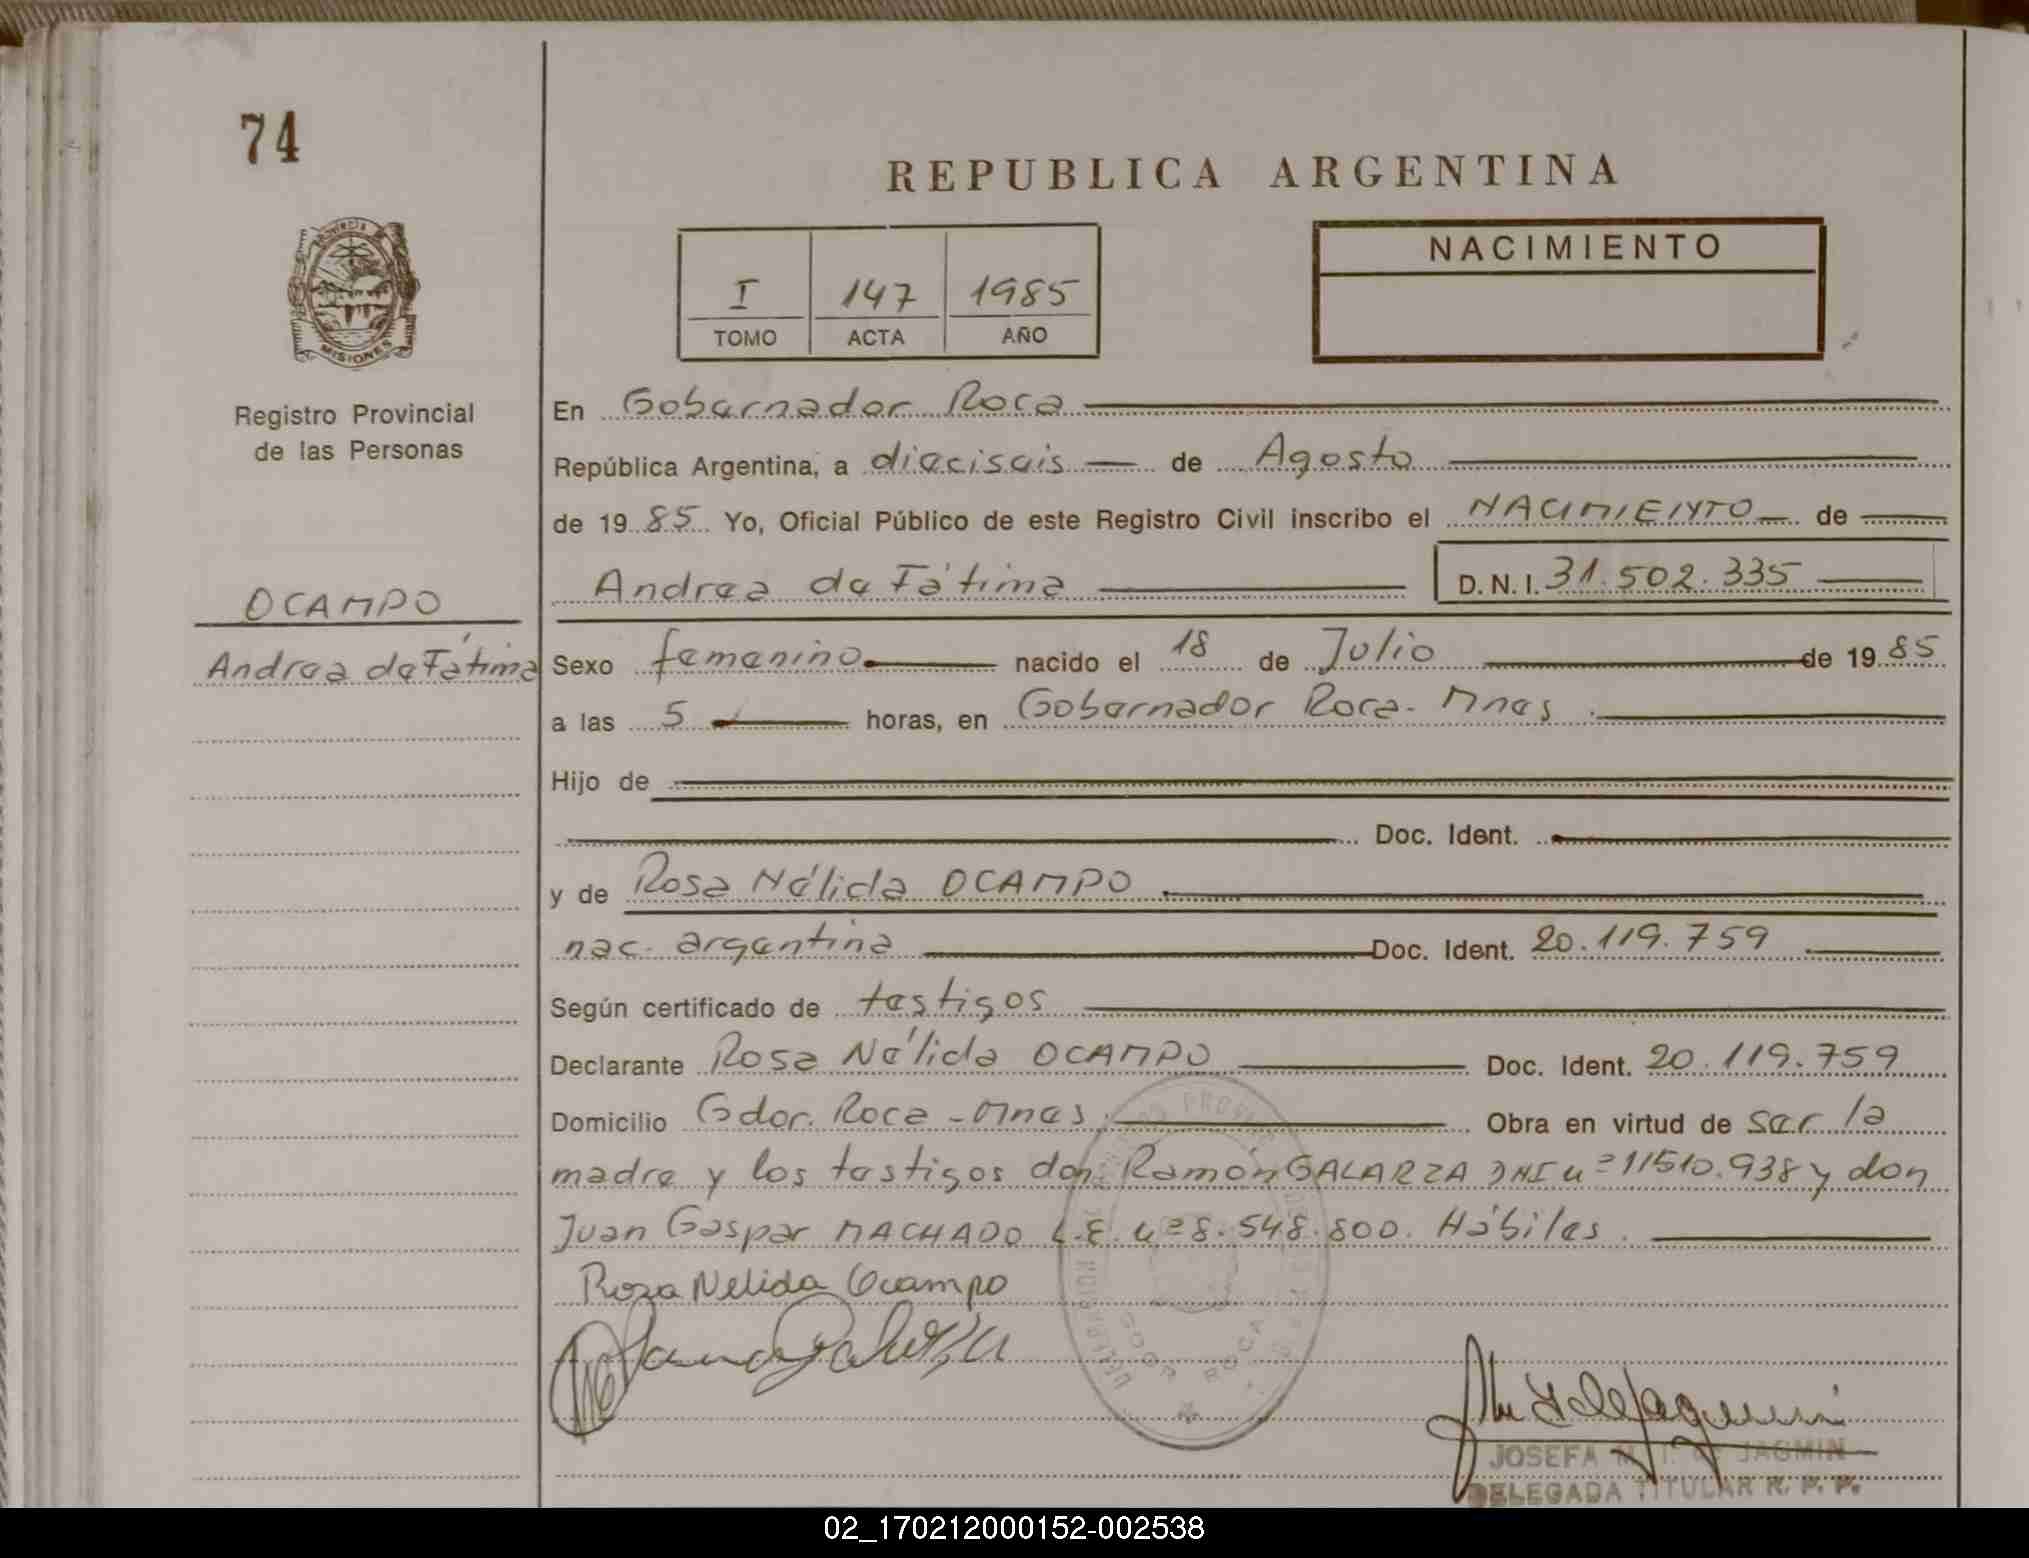 74
REPUBLICA ARGENTINA
PROVINCIA
MISIONES
I 147 1985
TOMO ACTA AÑO
NACIMIENTO
Registro Provincial
de las Personas
OCAMPO
Andrea de Fátima
En Gobernador Roca
República Argentina, a dieciseis de Agosto
de 1985 Yo, Oficial Público de este Registro Civil inscribo el NACIMIENTO de
Andrea de Fátima D. N. I. 31.502.335
Sexo femenino nacido el 18 de Julio de 1985
a las 5 horas, en Gobernador Roca - Mnes.
Hijo de
Doc. Ident.
y de Rosa Nélida OCAMPO
nac. argentina Doc. Ident. 20.119.759
Según certificado de testigos
Declarante Rosa Nélida OCAMPO Doc. Ident. 20.119.759
Domicilio Gdor. Roca - Mnes. Obra en virtud de ser la
madre y los testigos don Ramón GALARZA DNI nº 11510.938 y don
Juan Gaspar MACHADO L.E. nº 8.548.800. Hábiles.
Rosa Nelida Ocampo
GDOR ROCA
JOSEFA M. JAGMIN
DELEGADA TITULAR R. P. P.
02_170212000152-002538